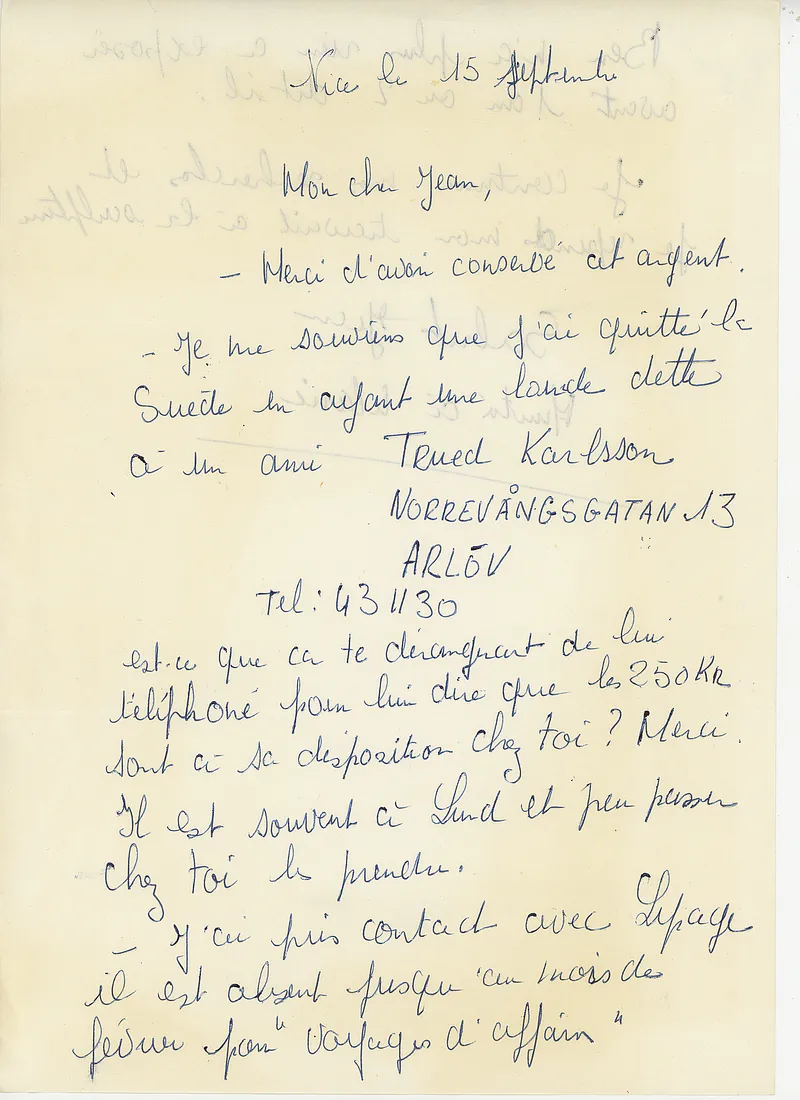 Nice le 15 Septembre
Mon cher Jean,
- Merci d'avoir conservé cet argent.
- Je me souviens que j'ai quitté la
Suède en ayant une lourde dette
à un ami Trued Karlsson
NORREVÅNGSGATAN 13
ARLÖV
Tel: 43 11 30
est-ce que ca te dérangerait de lui
téléphoné pour lui dire que les 250 KR
sont à sa disposition chez toi ? Merci.
Il est souvent à Lund et peu passer
chez toi les prendre.
- J'ai pris contact avec Lepage
il est absent jusqu'au mois de
février pour "voyages d'affaires"